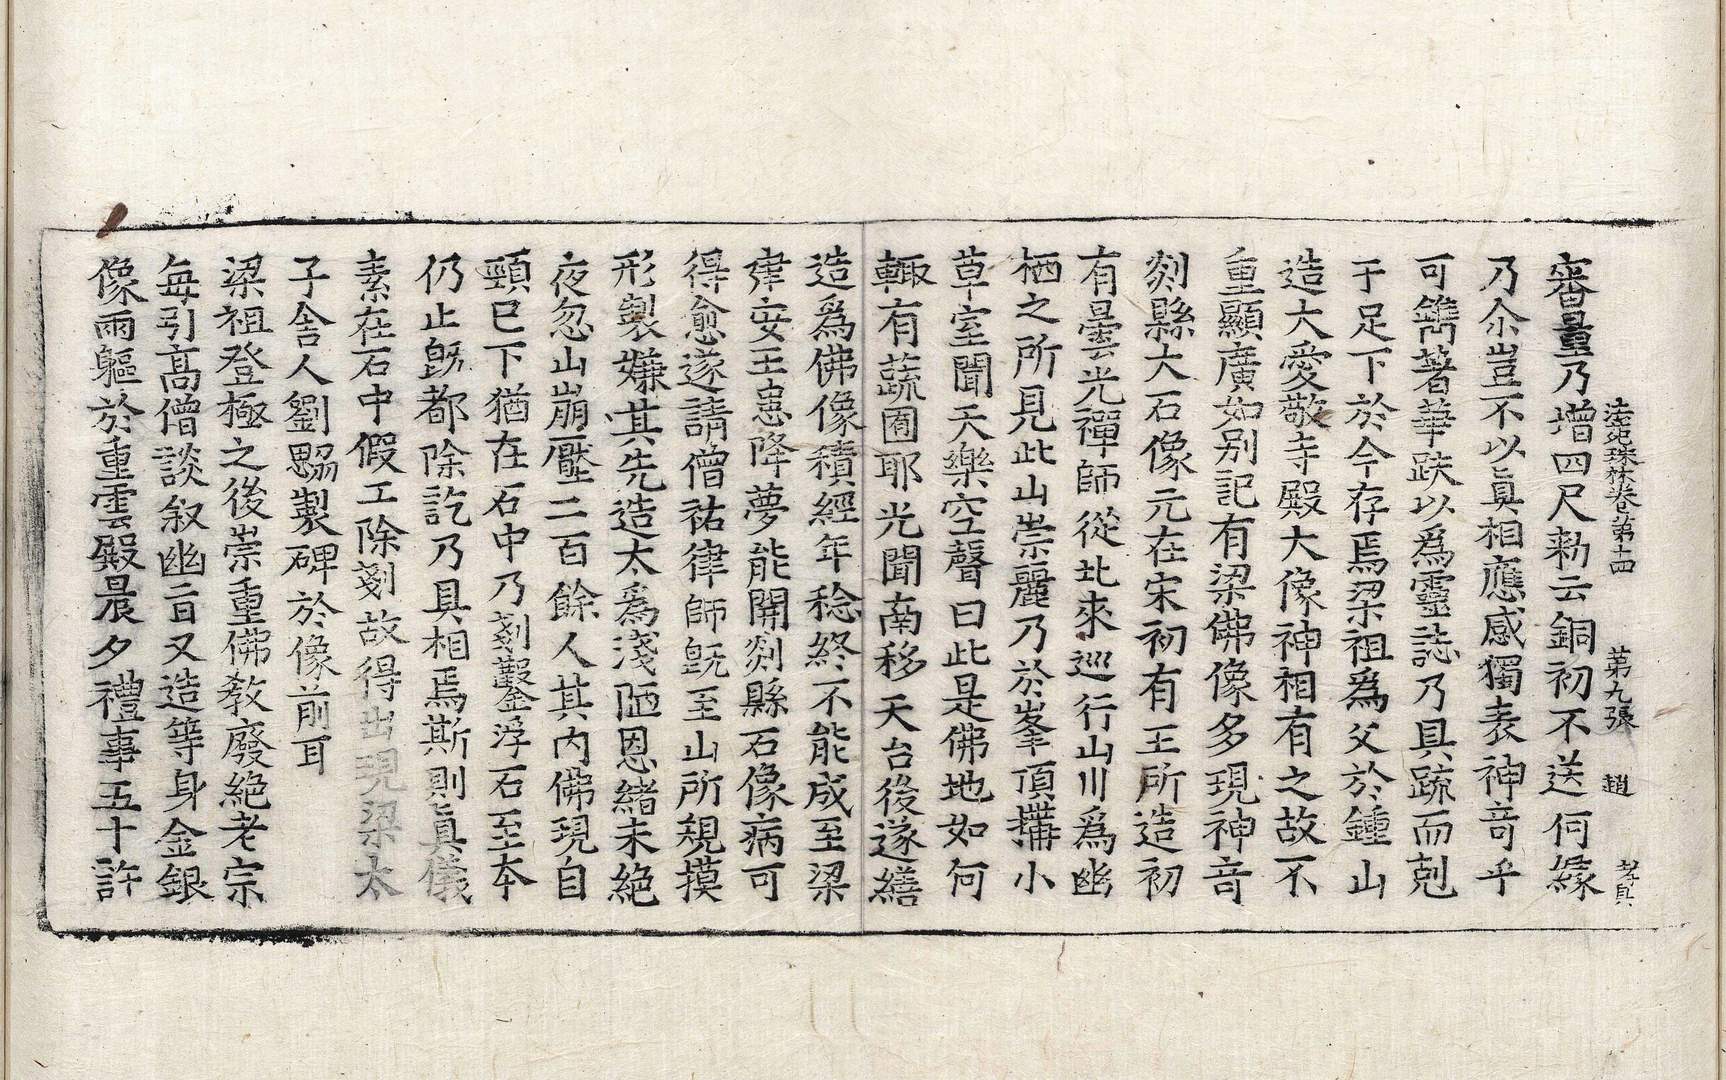 法苑珠林卷第十四　第九張　趙
審量乃增四尺勑云銅初不送何緣
乃尒豈不以眞相應感獨表神竒乎
可鐫著華趺以爲靈誌乃具疏而剋
于足下於今存焉梁祖爲父於鍾山
造大愛敬寺殿大像神相有之故不
重顯廣如別記有梁佛像多現神竒
剡縣大石像元在宋初有王所造初
有曇光禪師從北來巡行山川爲幽
栖之所見此山崇麗乃於峯頂搆小
草室聞天樂空聲曰此是佛地如何
輙有蔬圃耶光聞南移天台後遂繕
造爲佛像積經年稔終不能成至梁
建安王患降夢能開剡縣石像病可
得愈遂請僧祐律師旣至山所規摸
形製嫌其先造太爲淺陋思緒未絶
夜忽山崩壓二百餘人其內佛現自
頸已下猶在石中乃剗鑿浮石至本
仍止旣都除訖乃具相焉斯則眞儀
素在石中假工除剗故得出現梁太
子舍人劉勰製碑於像前耳
梁祖登極之後崇重佛敎廢絶老宗
每引髙僧談叙幽旨又造等身金銀
像兩軀於重雲殿晨夕禮事五十許